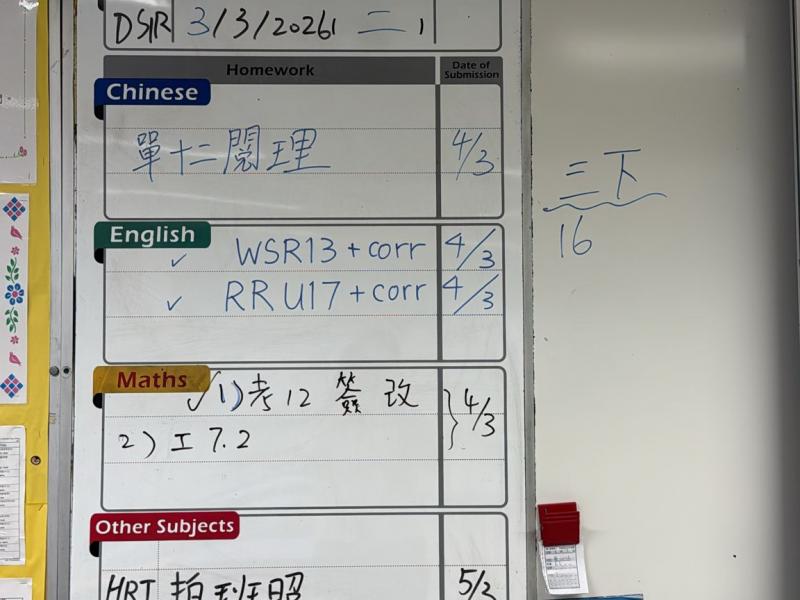 DSR 3/3/2026 二 1
Homework Date of Submission
Chinese
單十二閱理 4/3
三下
16
English
✓ WSR13 + corr 4/3
✓ RR U17 + corr 4/3
Maths
✓ 1) 考 12 簽 改 } 4/3
2) 工 7.2
Other Subjects
HRT 拍班照 5/3